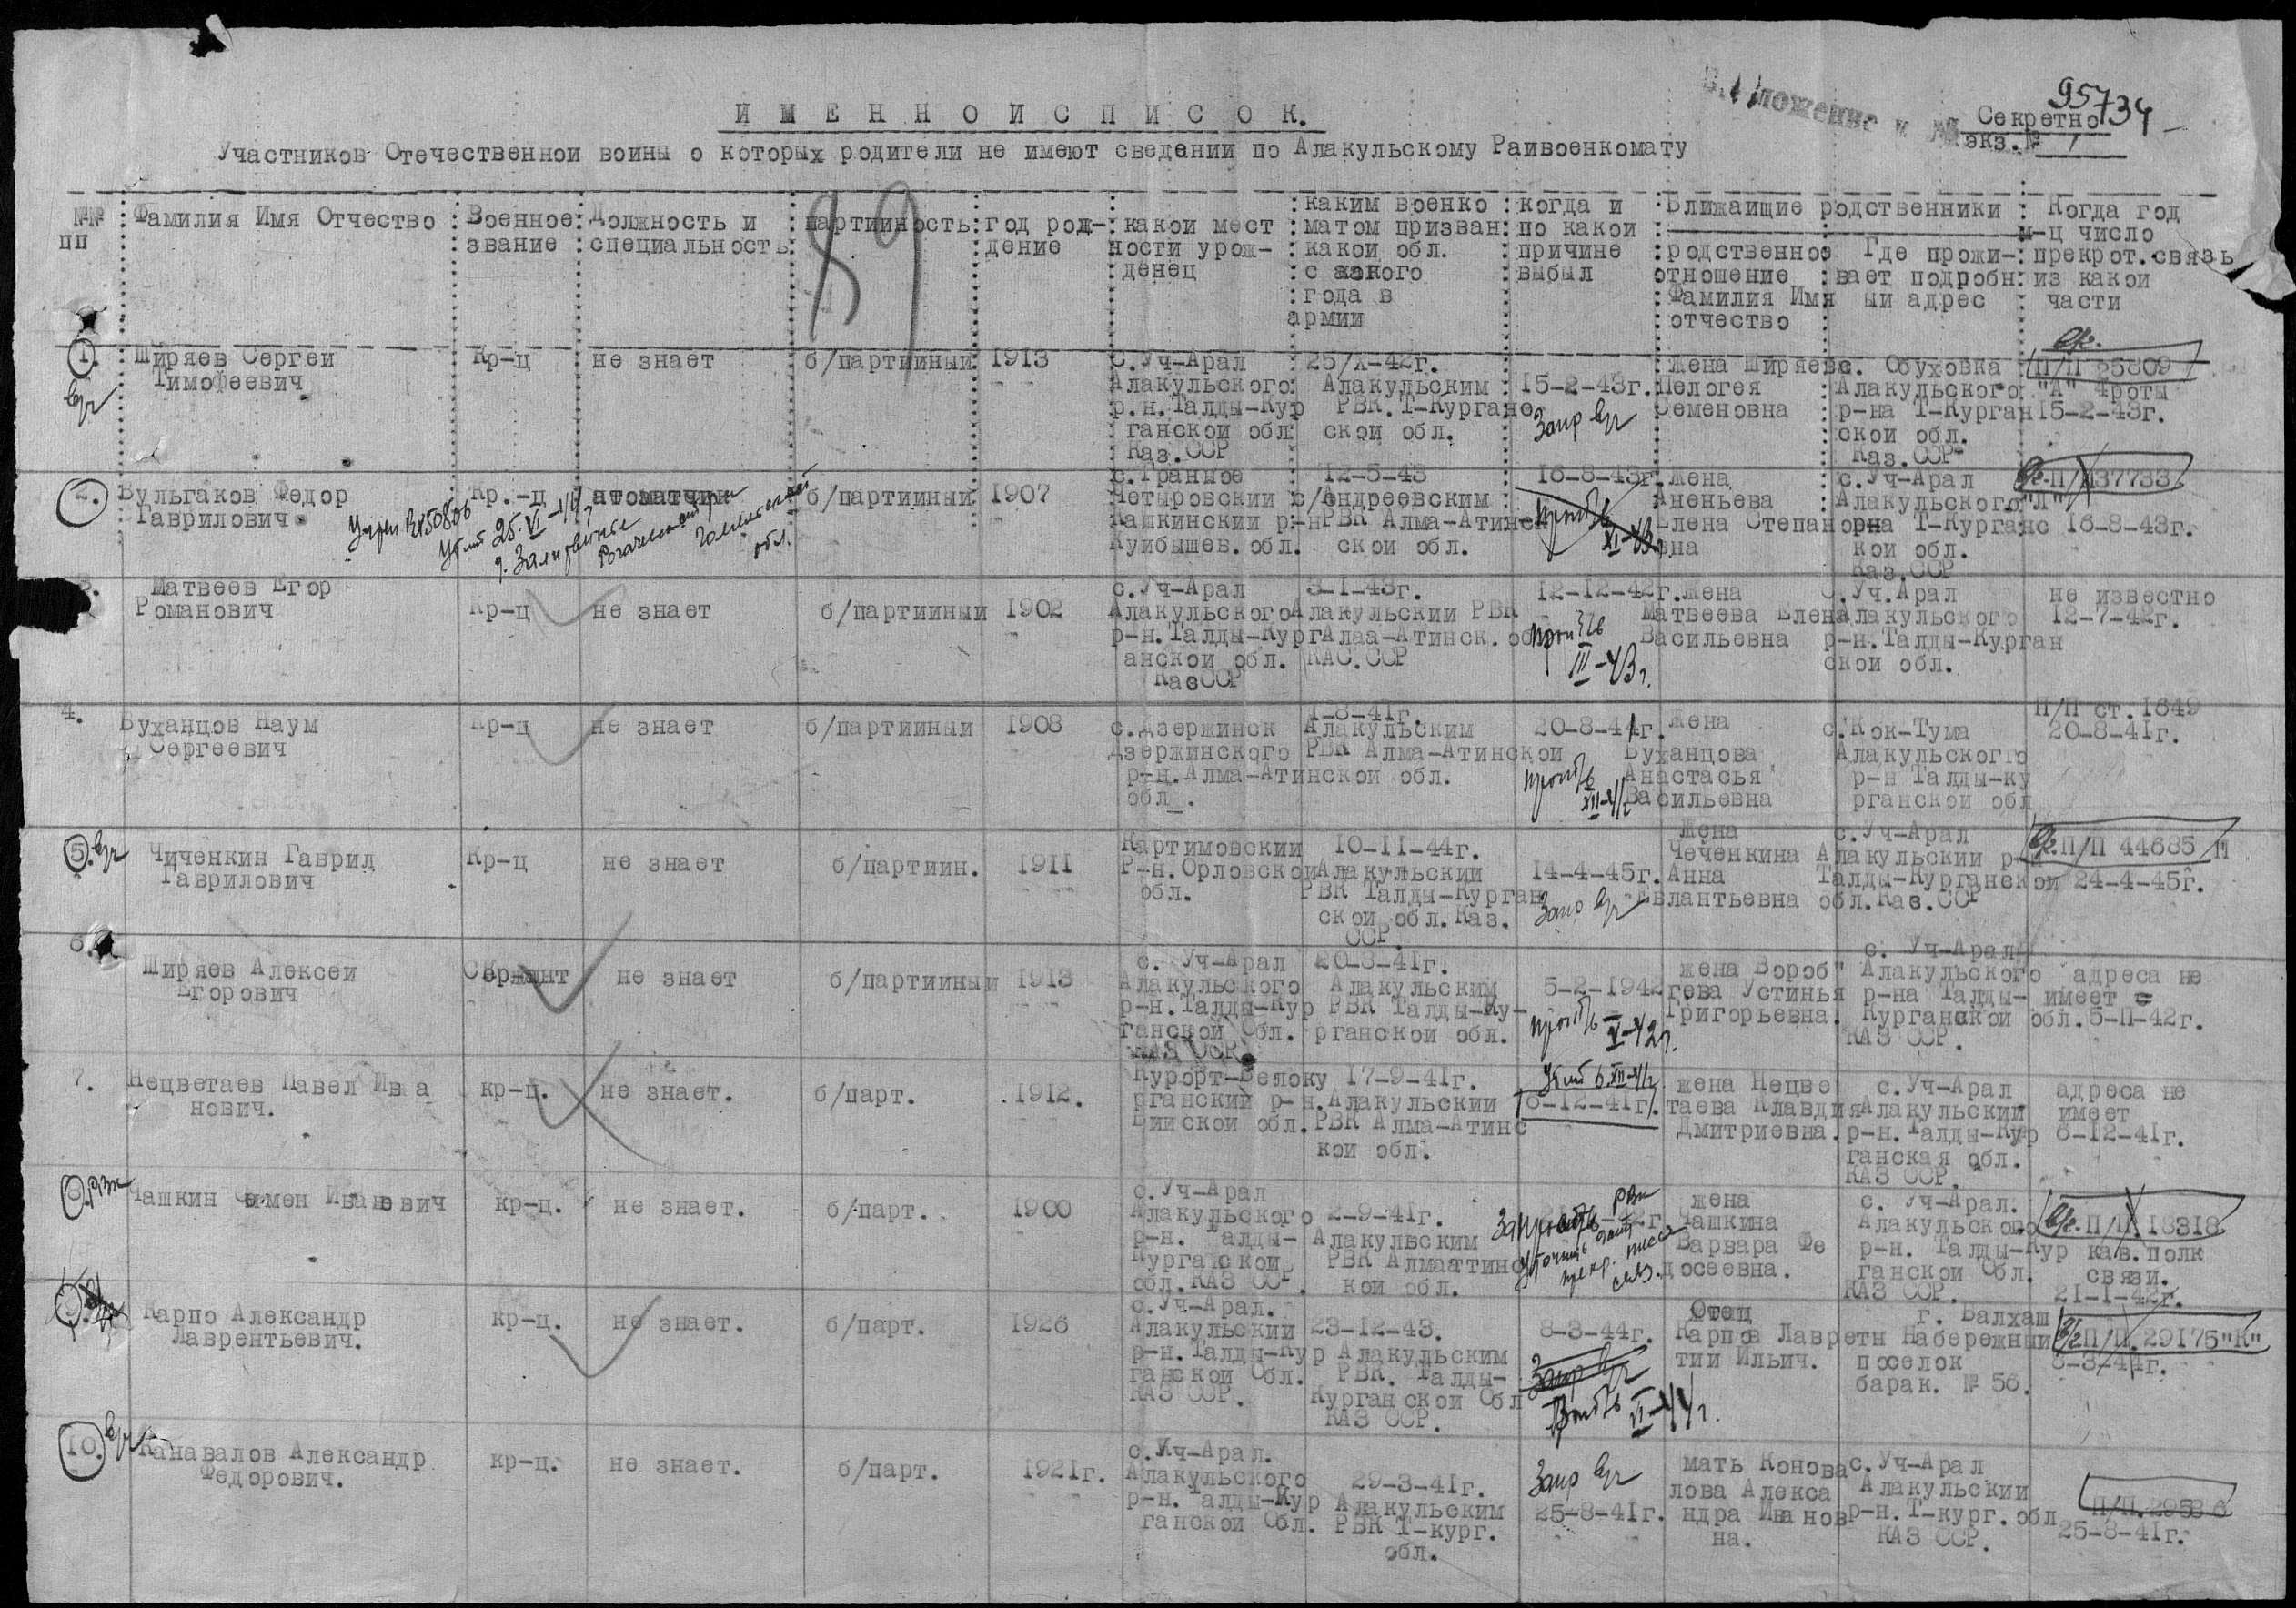 95734
Приложение к №
Секретно
экз.№ 1
И М Е Н Н О И С П И С О К.
Участников Отечественнои воины о которых родители не имеют сведении по Алакульскому Раивоенкомату
89
№№ пп
Фамилия Имя Отчество
Военное звание
Должность и специальность
партииность
год рож-дение
какои мест ности урож-денец
каким военко матом призван какои обл. с какого года в армии
когда и по какои причине выбыл
Ближаищие родственники
родственное отношение Фамилия Имя отчество
Где прожи-вает подробн ыи адрес
Когда год м-ц число прекрот.связь из какои части
1.
Ширяев Сергеи
Тимофеевич
Кр-ц
не знает
б/партииныи
1913
с.Уч-Арал
Алакульского
р.н.Талды-Кур
ганскои обл
Каз.ССР
25/X-42г.
Алакульским
РВК.Т-Кургане
скои обл.
15-2-43г.
Запр
жена Ширяева
Пелогея
Семеновна
с. Обуховка
Алакульского
р-на Т-Курган
скои обл.
Каз.ССР
П/П 25809
"А" 4роты
15-2-43г.
2.
Бульгаков Федор
Гаврилович
Кр.-ц
атоматчик
б/партииныи
1907
убит 25.VI-44г
обл.
с.Гранное
Четыровскии с/
Кашкинскии р-н
Куибышев.обл.
12-5-43
Андреевским
РВК Алма-Атинс
скои обл.
16-8-43г.
XI-43
жена
Ананьева
Елена Степанов
вна
с.Уч-Арал
Алакульского
рна Т-Курганс
кои обл.
Каз.ССР
П/П 37733
"Л"
16-8-43г.
3.
Матвеев Егор
Романович
Кр-ц
не знает
б/партииныи
1902
с.Уч-Арал
Алакульского
р-н.Талды-Кург
анскои обл.
КазССР
3-I-43г.
Алакульскии РВК
Алаа-Атинск.об
КАС.ССР
12-12-42г.
III-43г.
жена
Матвеева Елена
Васильевна
с.Уч.Арал
Алакульского
р-н.Талды-Курган
скои обл.
не известно
12-7-42г.
4.
Буханцов Наум
Сергеевич
Кр-ц
не знает
б/партииныи
1908
с.Дзержинск
Дзержинского
р-н.Алма-Атинскои
обл.
1-8-41г.
Алакульским
РВК Алма-Атинскои
обл.
20-8-41г.
XII-41г
жена
Буханцова
Анастасья
Васильевна
с.Кок-Тума
Алакульского
р-н Талды-ку
рганскои обл
П/П ст.1649
20-8-41г.
5.
Чиченкин Гаврил
Гаврилович
Кр-ц
не знает
б/партиин.
1911
Картимовскии
Р-н.Орловскои
обл.
10-11-44г.
Алакульскии
РВК Талды-Курган
скои обл.Каз.
ССР
14-4-45г.
Запр
жена
Чеченкина
Анна
Евлантьевна
с.Уч-Арал
Алакульскии р-н
Талды-Курганскои
обл.Каз.ССР
П/П 44685 П
24-4-45г.
6.
Ширяев Алексеи
Егорович
Сержант
не знает
б/партииныи
1913
с. Уч-Арал
Алакульского
р-н.Талды-Кур
ганскои Обл.
КАЗ ССР.
20-3-41г.
Алакульским
РВК Талды-Ку-
рганскои обл.
5-2-1942
V-42г.
жена Вороб"
гева Устинья
Григорьевна.
с. Уч-Арал
Алакульского
р-на Талды-
Курганскои обл.
КАЗ ССР.
адреса не
имеет
5-П-42г.
7.
Нецветаев Павел Ива
нович.
кр-ц.
не знает.
б/парт.
1912.
Курорт-Белоку
рганскии р-н.
Биискои обл.
17-9-41г.
Алакульскии
РВК Алма-Атинс
кои обл.
Убит 6.XII-41г
6-12-41г.
жена Нецве
таева Клавдия
Дмитриевна.
с.Уч-Арал
Алакульскии
р-н.Талды-Кур
ганская обл.
КАЗ ССР.
адреса не
имеет
6-12-41г.
8. РВК
Чашкин Семен Иванович
кр-ц.
не знает.
б/парт.
1900
с.Уч-Арал
Алакульского
р-н. Талды-
Курганскои
обл.КАЗ ССР.
2-9-41г.
Алакульским
РВК Алмаатинс
кои обл.
Запросить РВК
жена
Чашкина
Варвара Фе
досеевна.
с. Уч-Арал.
Алакульского
р-н. Талды-Кур
ганскои Обл.
КАЗ ССР.
П/П 18318
кав.полк
связи.
21-1-42г.
9.
Карпо Александр
Лаврентьевич.
кр-ц.
не знает.
б/парт.
1926
с.Уч-Арал.
Алакульскии
р-н.Талды-Кур
ганскои Обл.
КАЗ ССР.
23-12-43.
Алакульским
РВК. Талды-
Курганскои Обл
КАЗ ССР.
8-3-44г.
VI-44г.
Отец
Карпов Лавретн
тии Ильич.
г. Балхаш
Набережныи
поселок
барак. № 56.
П/П.29175"К"
8-3-44г.
10.
Канавалов Александр
Федорович.
кр-ц.
не знает.
б/парт.
1921г.
с.Уч-Арал.
Алакульского
р-н. Талды-Кур
ганскои Обл.
29-3-41г.
Алакульским
РВК Т-кург.
обл.
Запр
25-8-41г.
мать Конова
лова Алекса
ндра Иванов
на.
с.Уч-Арал
Алакульскии
р-н.Т-кург.обл
КАЗ ССР.
П/П.29586
25-8-41г.